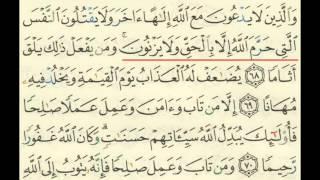 وَالَّذِينَ لَا يَدْعُونَ مَعَ اللَّهِ إِلَٰهًا آخَرَ وَلَا يَقْتُلُونَ النَّفْسَ
الَّتِي حَرَّمَ اللَّهُ إِلَّا بِالْحَقِّ وَلَا يَزْنُونَ ۚ وَمَن يَفْعَلْ ذَٰلِكَ يَلْقَ
أَثَامًا ٦٨ يُضَاعَفْ لَهُ الْعَذَابُ يَوْمَ الْقِيَامَةِ وَيَخْلُدْ فِيهِ
مُهَانًا ٦٩ إِلَّا مَن تَابَ وَآمَنَ وَعَمِلَ عَمَلًا صَالِحًا
فَأُولَٰئِكَ يُبَدِّلُ اللَّهُ سَيِّئَاتِهِمْ حَسَنَاتٍ ۗ وَكَانَ اللَّهُ غَفُورًا
رَّحِيمًا ٧٠ وَمَن تَابَ وَعَمِلَ صَالِحًا فَإِنَّهُ يَتُوبُ إِلَى اللَّهِ